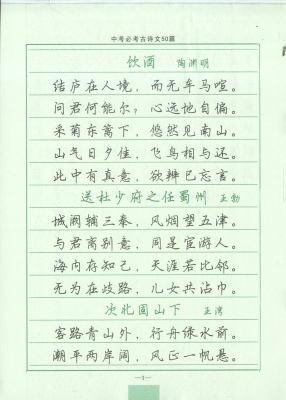 中考必考古诗文50篇
饮酒 陶渊明
结庐在人境，而无车马喧。
问君何能尔？心远地自偏。
采菊东篱下，悠然见南山。
山气日夕佳，飞鸟相与还。
此中有真意，欲辨已忘言。
送杜少府之任蜀州 王勃
城阙辅三秦，风烟望五津。
与君离别意，同是宦游人。
海内存知己，天涯若比邻。
无为在歧路，儿女共沾巾。
次北固山下 王湾
客路青山外，行舟绿水前。
潮平两岸阔，风正一帆悬。
—1—